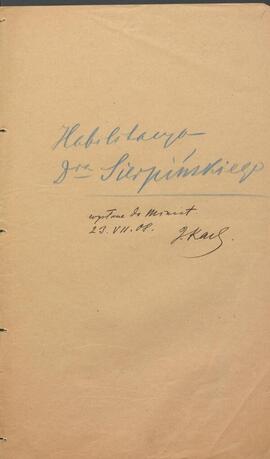 Habilitacya
Dra Sierpińskiego
wysłane do Minist.
23. VII. 08.